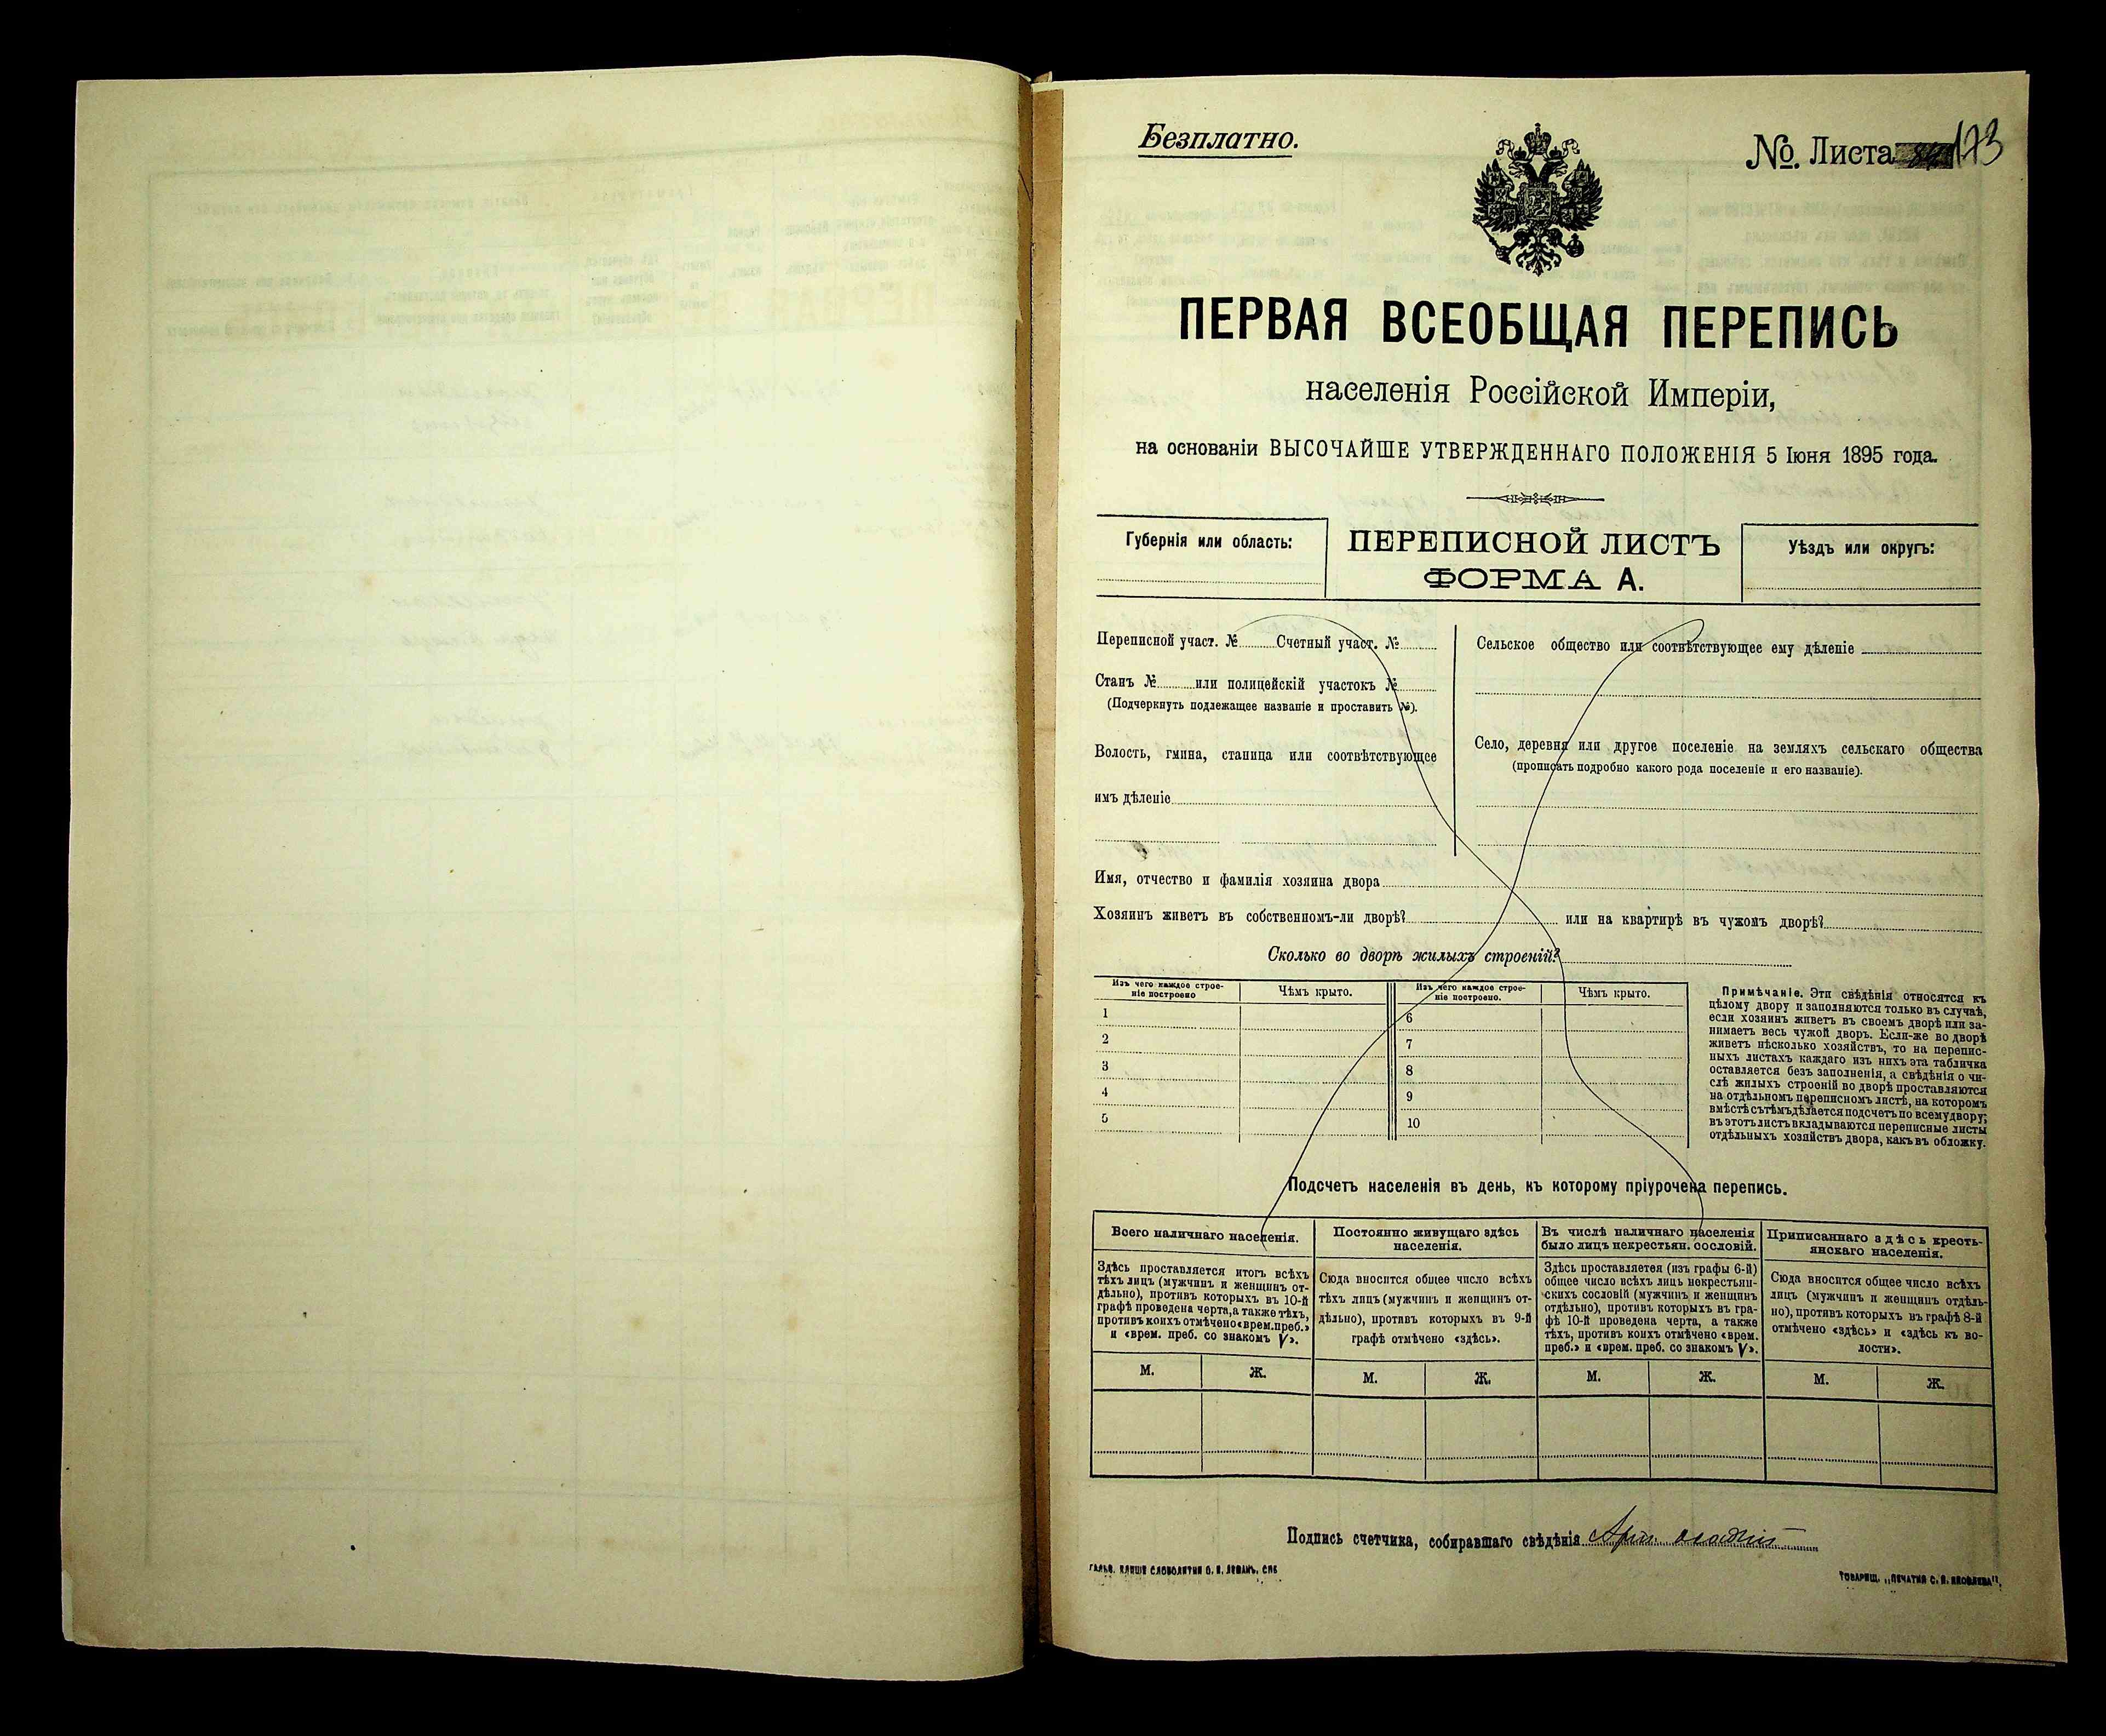 Безплатно.
№. Листа 173
ПЕРВАЯ ВСЕОБЩАЯ ПЕРЕПИСЬ
населенія Россійской Имперіи,
на основаніи ВЫСОЧАЙШЕ УТВЕРЖДЕННАГО ПОЛОЖЕНІЯ 5 Іюня 1895 года.
Губернія или область:
ПЕРЕПИСНОЙ ЛИСТЪ
ФОРМА А.
Уѣздъ или округъ:
Переписной участ. № Счетный участ. №
Станъ № или полицейскій участокъ №
(Подчеркнуть подлежащее названіе и проставить №).
Волость, гмина, станица или соотвѣтствующее
имъ дѣленіе
Сельское общество или соотвѣтствующее ему дѣленіе
Село, деревня или другое поселеніе на земляхъ сельскаго общества
(прописать подробно какого рода поселеніе и его названіе).
Имя, отчество и фамилія хозяина двора
Хозяинъ живетъ въ собственномъ-ли дворѣ? или на квартирѣ въ чужомъ дворѣ?
Сколько во дворѣ жилыхъ строеній?
Изъ чего каждое строе-
ніе построено
Чѣмъ крыто.
Изъ чего каждое строе-
ніе построено.
Чѣмъ крыто.
1
2
3
4
5
6
7
8
9
10
Примѣчаніе. Эти свѣдѣнія относятся къ
цѣлому двору и заполняются только въ случаѣ,
если хозяинъ живетъ въ своемъ дворѣ или за-
нимаетъ весь чужой дворъ. Если-же во дворѣ
живетъ нѣсколько хозяйствъ, то на перепис-
ныхъ листахъ каждаго изъ нихъ эта табличка
оставляется безъ заполненія, а свѣдѣнія о чи-
слѣ жилыхъ строеній во дворѣ проставляются
на отдѣльномъ переписномъ листѣ, на которомъ
вмѣстѣ съ тѣмъ дѣлается подсчетъ по всему двору;
въ этотъ листъ вкладываются переписные листы
отдѣльныхъ хозяйствъ двора, какъ въ обложку.
Подсчетъ населенія въ день, къ которому пріурочена перепись.
Всего наличнаго населенія.
Здѣсь проставляется итогъ всѣхъ
тѣхъ лицъ (мужчинъ и женщинъ от-
дѣльно), противъ которыхъ въ 10-й
графѣ проведена черта, а также тѣхъ,
противъ коихъ отмѣчено «врем. преб.»
и «врем. преб. со знакомъ V».
Постоянно живущаго здѣсь
населенія.
Сюда вносится общее число всѣхъ
тѣхъ лицъ (мужчинъ и женщинъ от-
дѣльно), противъ которыхъ въ 9-й
графѣ отмѣчено «здѣсь».
Въ числѣ наличнаго населенія
было лицъ некрестьян. сословій.
Здѣсь проставляется (изъ графы 6-й)
общее число всѣхъ лицъ некрестьян-
скихъ сословій (мужчинъ и женщинъ
отдѣльно), противъ которыхъ въ гра-
фѣ 10-й проведена черта, а также
тѣхъ, противъ коихъ отмѣчено «врем.
преб.» и «врем. преб. со знакомъ V».
Приписаннаго здѣсь кресть-
янскаго населенія.
Сюда вносится общее число всѣхъ
лицъ (мужчинъ и женщинъ отдѣль-
но), противъ которыхъ въ графѣ 8-й
отмѣчено «здѣсь» и «здѣсь къ во-
лости».
М. Ж. М. Ж. М. Ж. М. Ж.
Подпись счетчика, собиравшаго свѣдѣнія
ГАЛЬВ. КЛИШЕ СЛОВОЛИТНИ О. И. ЛЕМАНЪ, СПБ
ТОВАРИЩ. „ПЕЧАТНЯ С. П. ЯКОВЛЕВА".